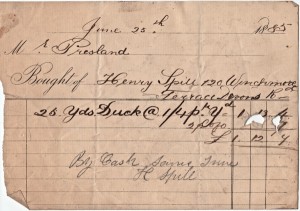 June 25th 1885
Mr Presland
Bought of Henry Spill 120, Windermere
Terrace
25 Yds Duck @ 1/4 pr Yd 1 12
£ 1. 12
By Cash Same Time
H Spill